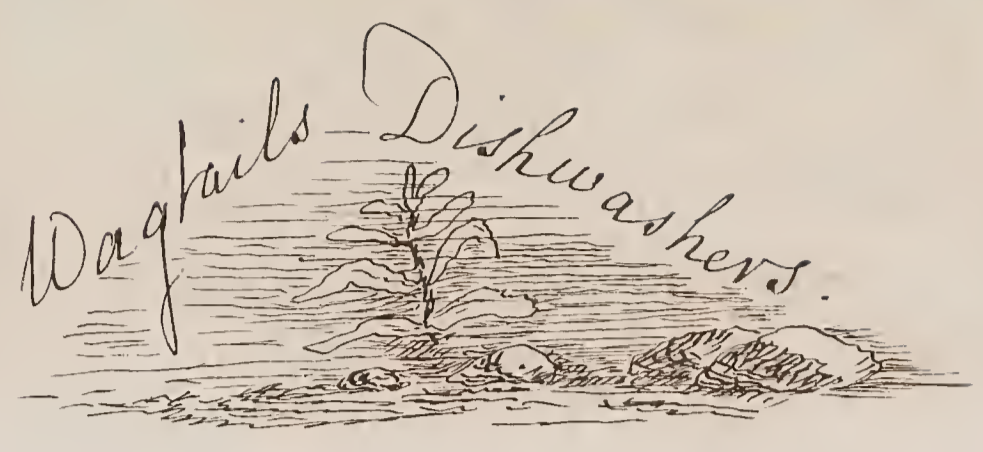 Wagtails — Dishwashers.